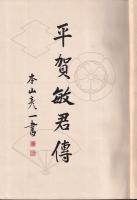 平賀敏君傳
本山彦一書